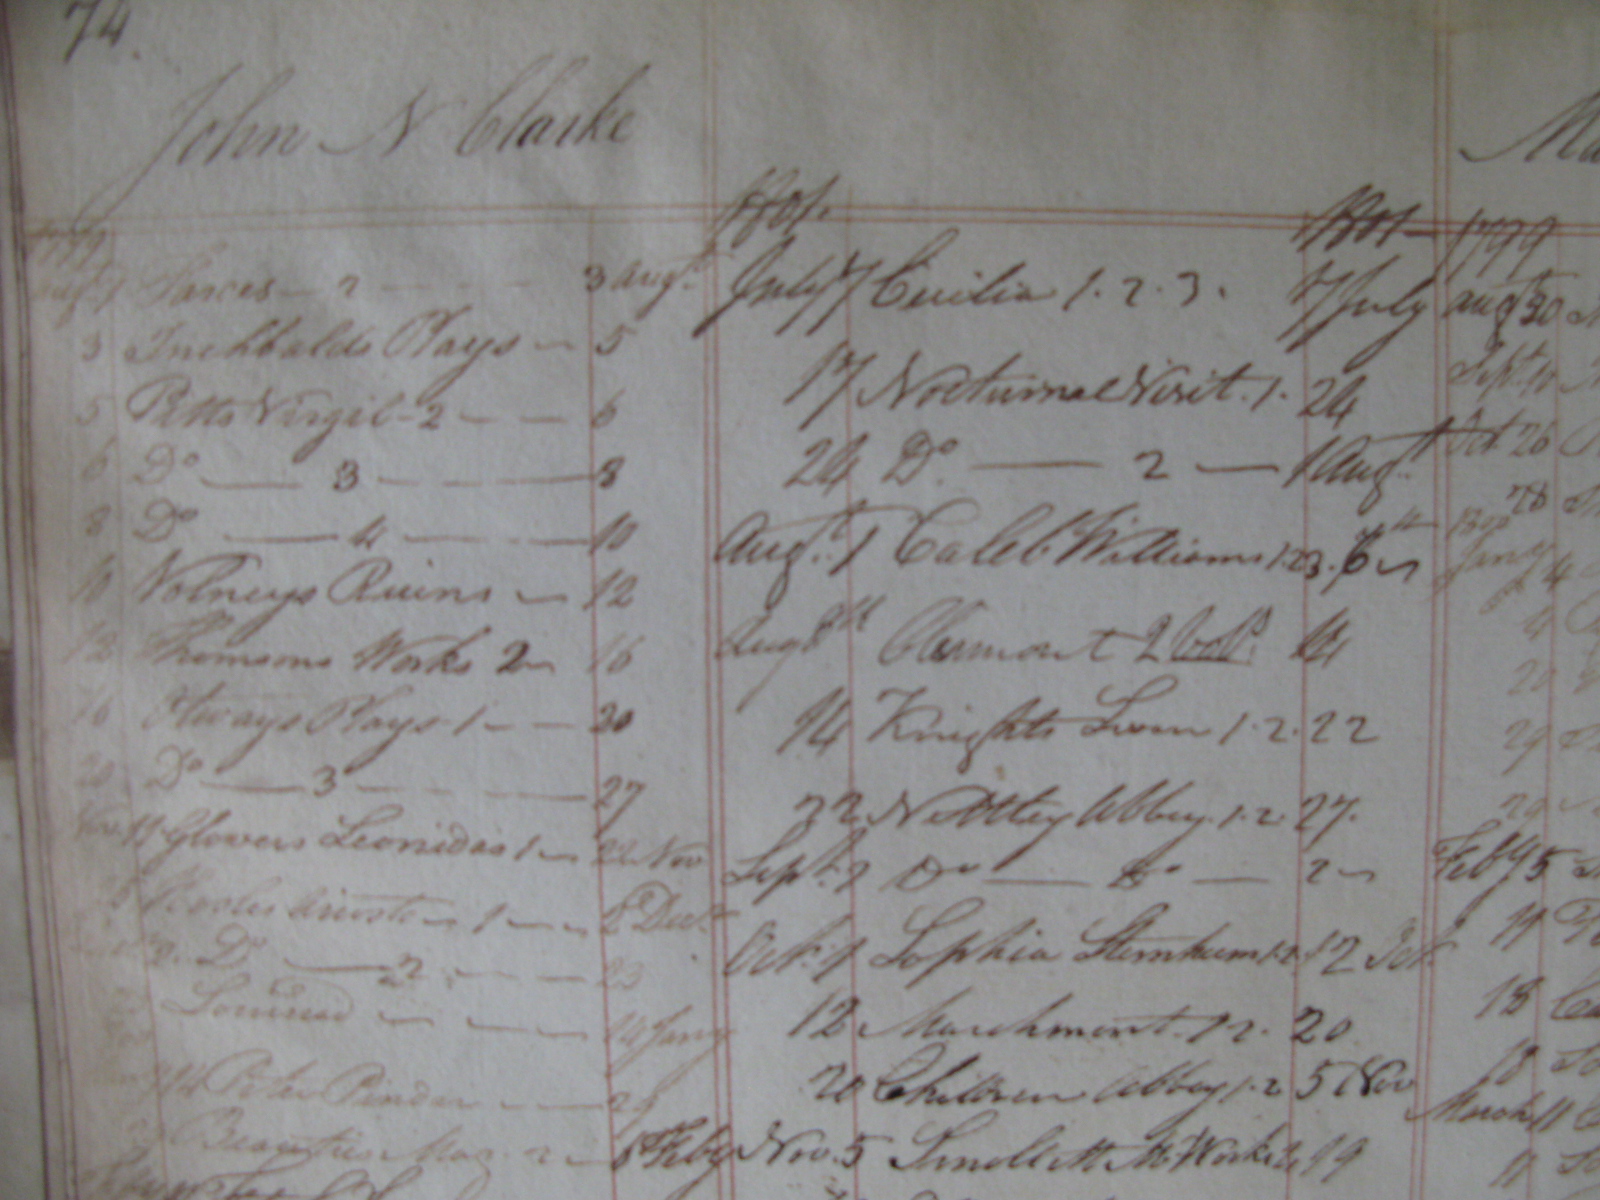 74
John N Clarke
1799
Augt 1 Farces - 2 - - - 3 Augt
3 Inchbalds Plays - 5
5 Pitts Virgil - 2 - - 6
6 Do - 3 - - - 8
8 Do - 4 - - 10
10 Volneys Ruins - 12
12 Thomsons Works 2 - 16
16 Otways Plays 1 - - 20
20 Do - 3 - - - 27
Nov. 19 Glovers Leonidas 1 - 22 Nov
1 - - 8 Decr
Do - 2 - - 23
- - - 14 Jany
14 Peter Pindar - - 29
Beauties Mag. 2 - 5 Feby
1801.
1801
July 7 Cecilia 1. 2. 3. 7 July
17 Nocturnal Visit. 1. 24
24 Do. - 2 - 1 Augt
Augt. 1 Caleb Williams 1. 2 3.
Aug 8th Clermont 2 Vols. 14
14 Knights Swan 1. 2. 22
22 Nettley Abbey. 1. 2. 27.
Sept. 2 Do - Do - 2
Oct. 1 Sophia Sternheim 1. 2. 12 Oct.
12 Marchmont. 1 2. 20
20 Children Abbey 1. 2 5 Nov
Nov. 5 Smollett M. Works 19
Ma
1799
Augt 30
Sept. 10
Oct 26
28
Jany 4
4
20
29
29
Feby 5
11
18
18
March 11
11